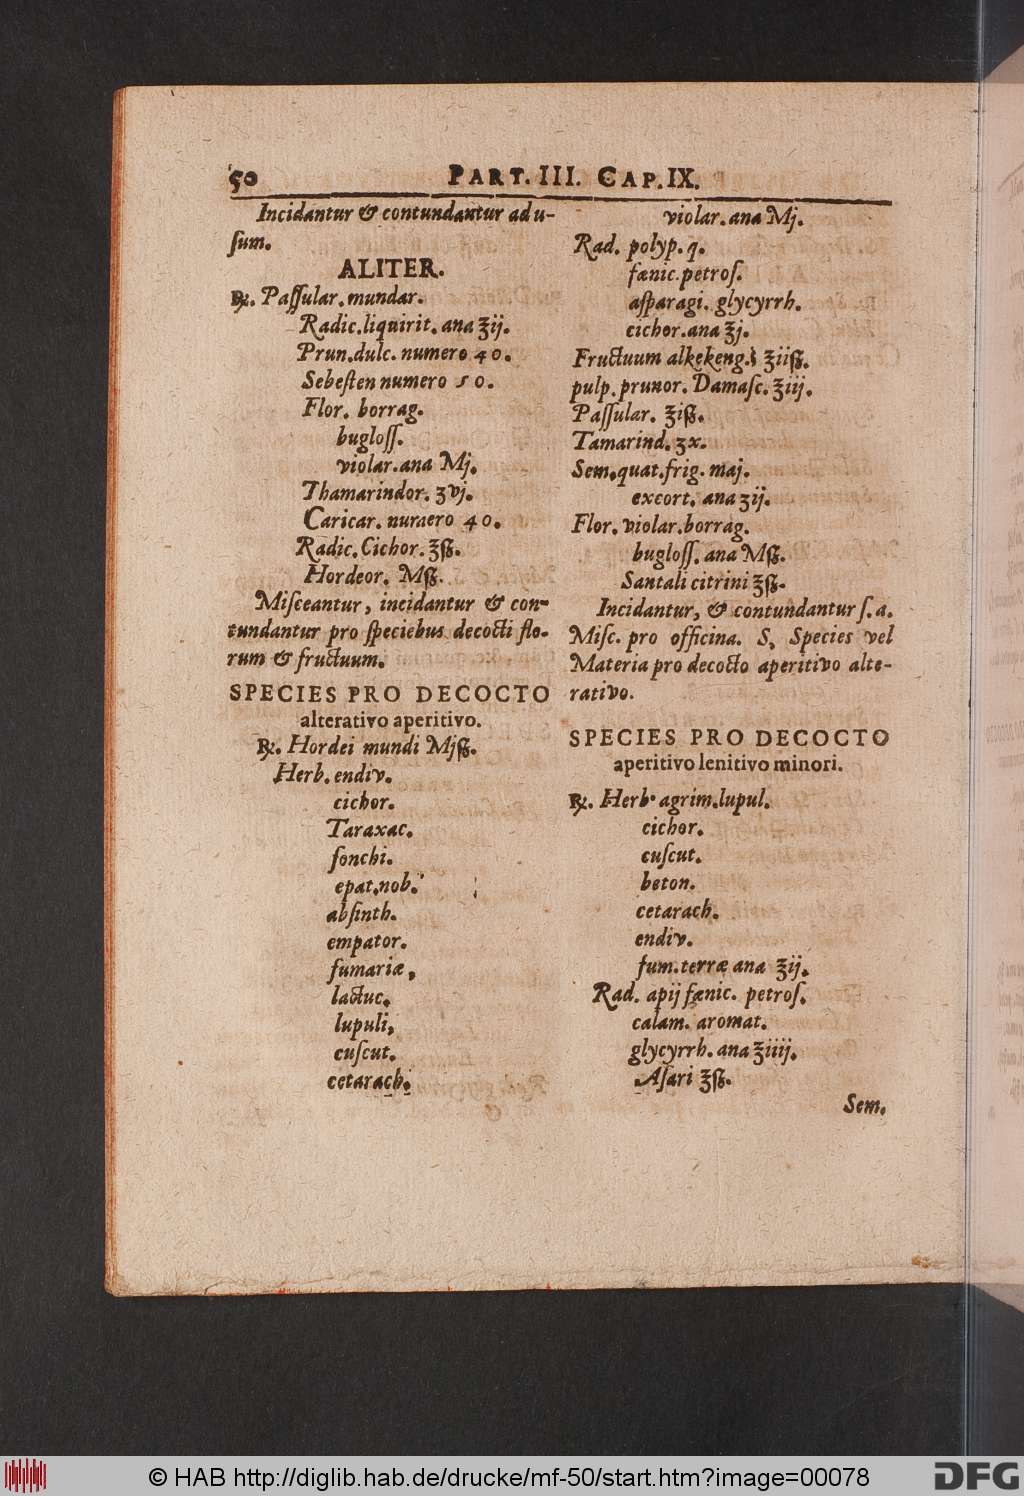 50 PART. III. CAP. IX.
Incidantur & contundantur ad u-
ſum.
ALITER.
℞. Paſſular. mundar.
Radic. liquirit. ana ℥ij.
Prun. dulc. numero 40.
Sebeſten numero 50.
Flor. borrag.
bugloſſ.
violar. ana Mj.
Thamarindor. ʒvj.
Caricar. numero 40.
Radic. Cichor. ℥ß.
Hordeor. Mß.
Miſceantur, incidantur & con-
tundantur pro ſpeciebus decocti flo-
rum & fructuum.
SPECIES PRO DECOCTO
alterativo aperitivo.
℞. Hordei mundi Mjß.
Herb. endiv.
cichor.
Taraxac.
ſonchi.
epat. nob.
abſinth.
empator.
fumariæ,
lactuc.
lupuli,
cuſcut.
cetarach.
violar. ana Mj.
Rad. polyp. q.
fænic. petroſ.
aſparagi. glycyrrh.
cichor. ana ℥j.
Fructuum alkekeng. ℥iiß.
pulp. prunor. Damaſc. ℥iij.
Paſſular. ℥iß.
Tamarind. ʒx.
Sem. quat. frig. maj.
excort. ana ʒij.
Flor. violar. borrag.
bugloſſ. ana Mß.
Santali citrini ℥ß.
Incidantur, & contundantur ſ. a.
Miſc. pro officina. S, Species vel
Materia pro decocto aperitivo alte-
rativo.
SPECIES PRO DECOCTO
aperitivo lenitivo minori.
℞. Herb. agrim. lupul.
cichor.
cuſcut.
beton.
cetarach.
endiv.
fum. terræ ana ℥ij.
Rad. apij fænic. petroſ.
calam. aromat.
glycyrrh. ana ℥iiij.
Aſari ℥ß.
Sem.
© HAB http://diglib.hab.de/drucke/mf-50/start.htm?image=00078
DFG